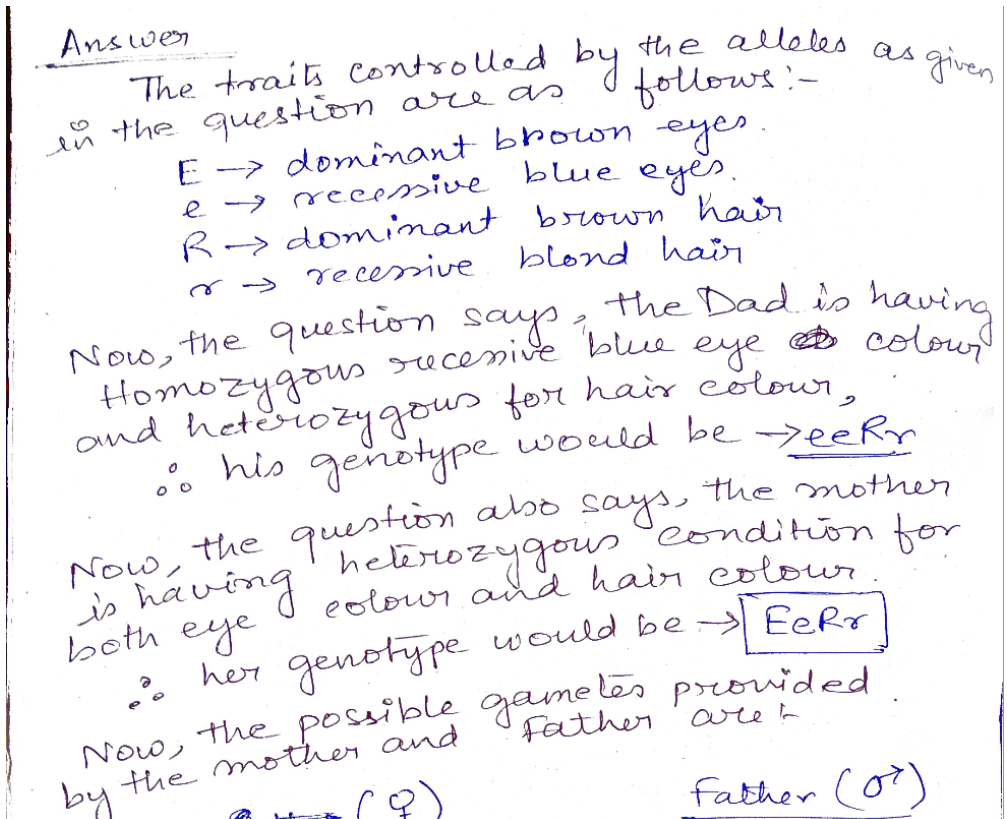 Answer
The traits controlled by the alleles as given
in the question are as follows:-
E → dominant brown eyes.
e → recessive blue eyes.
R → dominant brown hair
r → recessive blond hair
Now, the question says, the Dad is having
Homozygous recessive blue eye colour
and heterozygous for hair colour,
∴ his genotype would be → eeRr
Now, the question also says, the mother
is having heterozygous condition for
both eye colour and hair colour.
∴ her genotype would be → EeRr
Now, the possible gametes provided
by the mother and Father are:-
(♀) Father (♂)